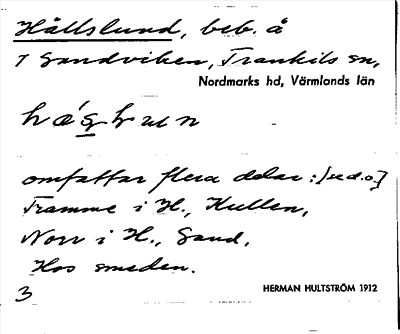 Hållslund, beb. å
1 Sandviken, Trankils sn,
Nordmarks hd, Värmlands län
omfattar flera delar: [se d.o.]
Framme i H., Kullen,
Norr i H., Sand,
Hos smeden.
3
HERMAN HULTSTRÖM 1912